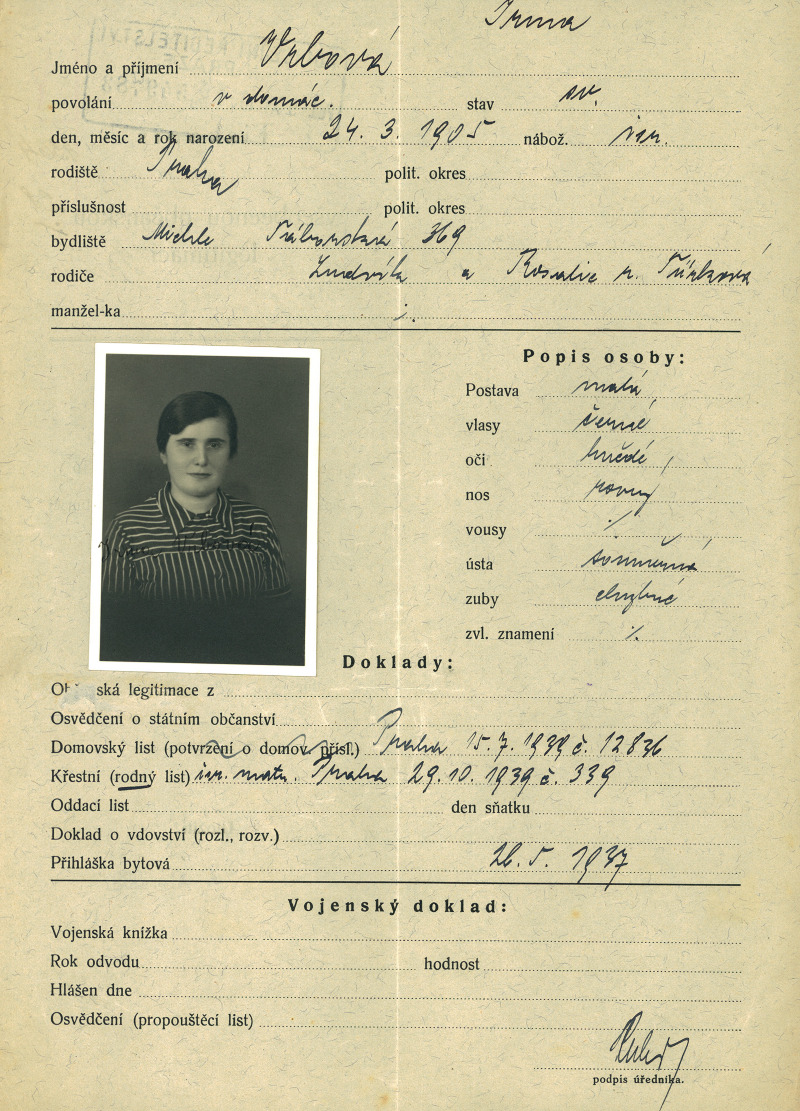 Irma
Jméno a příjmení Vrbová
povolání v domác. stav sv.
den, měsíc a rok narození 24. 3. 1905 nábož. isr.
rodiště Praha polit. okres
příslušnost polit. okres
bydliště Michle Táborská 369
rodiče Ludvík a Rosalie r. Türková
manžel-ka ./.
Popis osoby:
Postava malá
vlasy černé
oči hnědé
nos rovný
vousy ./.
ústa souměrná
zuby chybné
zvl. znamení ./.
Irma Vrbová
Doklady:
ská legitimace z
Osvědčení o státním občanství
Domovský list (potvrzení o domov. přísl.) Praha 15. 7. 1939 č. 12836
Křestní (rodný list) isr. matr. Praha 29. 10. 1939 č. 339
Oddací list den sňatku
Doklad o vdovství (rozl., rozv.)
Přihláška bytová 26. 5. 1937
Vojenský doklad:
Vojenská knížka
Rok odvodu hodnost
Hlášen dne
Osvědčení (propouštěcí list)
podpis úředníka.